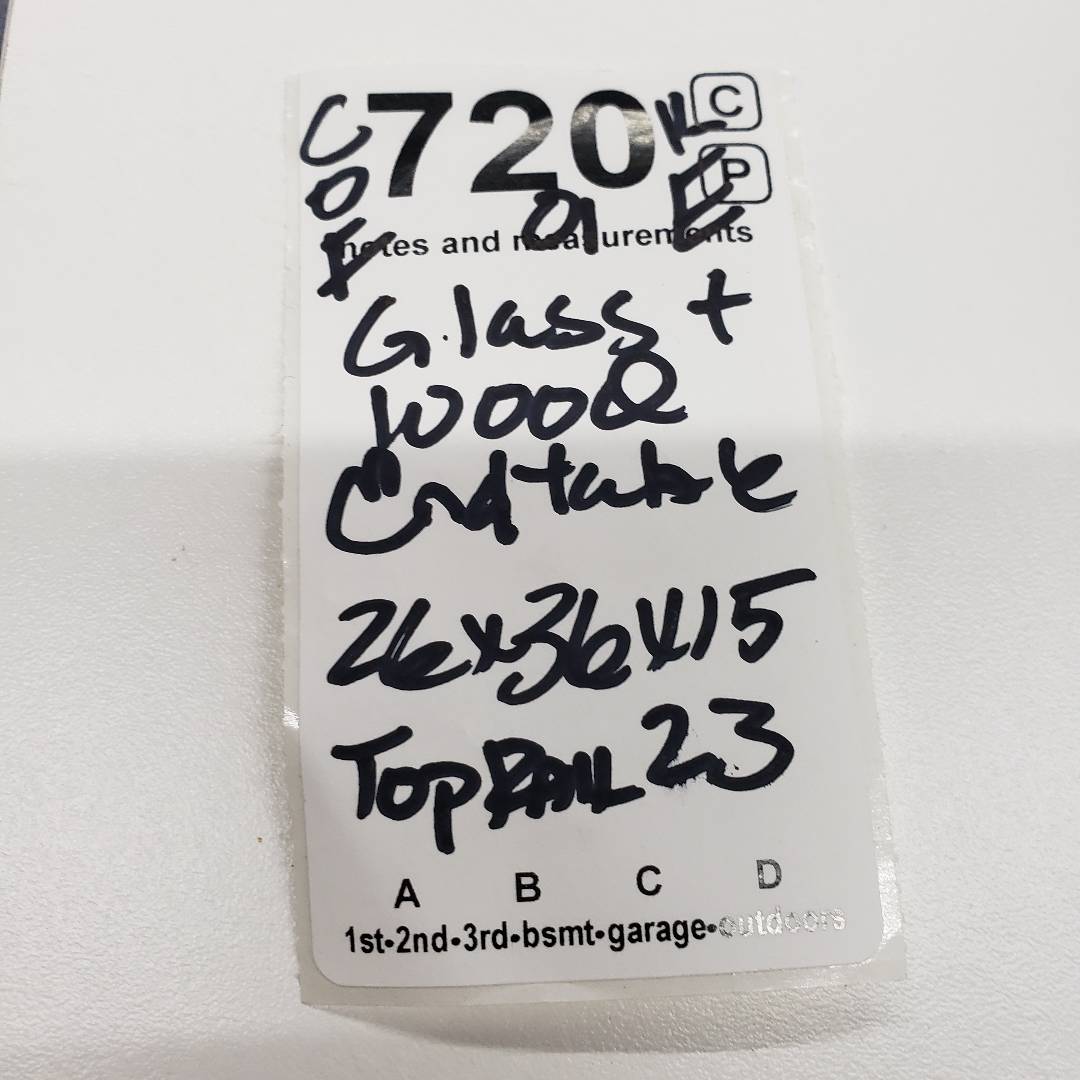 720 C
P
01
notes and measurements
Glass +
wood
End table
26x36x15
Top RAIL 23
A B C D
1st•2nd•3rd•bsmt•garage•outdoors